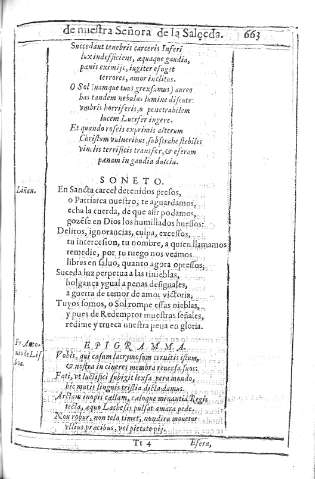 de nuestra Señora de la Salceda. 663
Succedant tenebris carceris Inferi
lux indeficiens, æquaque gaudia,
pænis eximijs, iugiter effuget
terrores, amor inclitus.
O Sol
bas tandem nebulas lumine discute:
vmbris horriferis, & penetrabilem
lucem Lucifer ingere.
Et quando roseis exprimis alterum
Christum vulneribus, substrahe flebiles
vinclis territificis transfer, & efferam
pænam in gaudia dulcia.
SONETO.
Liñan.
En Sancta carcel detenidos presos,
o Patriarca nuestro, te aguardamos,
echa la cuerda, de que asir podamos,
gozese en Dios los humillados huessos:
Delitos, ignorancias, culpa, excessos,
tu intercession, tu nombre, a quien llamamos
remedie, por tu ruego nos veamos
libres en saluo, quanto agora opressos;
Suceda luz perpetua a las tinieblas,
holgança ygual a penas desiguales,
a guerra de temor de amor victoria,
Tuyos somos, o Sol rompe essas nieblas,
y pues de Redemptor muestras señales,
redime y trueca nuestra pena en gloria.
EPIGRAMMA.
Vobis, qui casum lacrymosum cernitis istum,
& nostra in cineres membra reuersa sunt:
Fati, vt luctifici subigit lex sæpe
hic mutis linguis tristia dicta damus.
tecta, æquo Lachesis pulsat amara pede.
Non robur, non tela timet, nec dira mouetur
vllius precibus, vel pietate pij.
Tt 4 Espera,